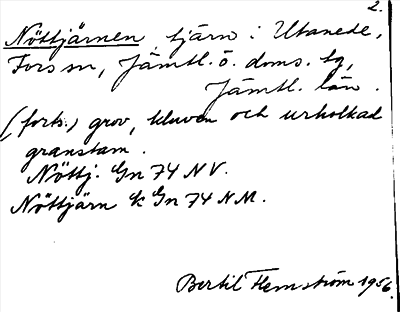 2.
Nöttjärnen, tjärn i Utanede,
Fors sn, Jämtl. ö. doms. sg,
Jämtl. län.
(forts.) grov, kluven och urholkad
granstam.
Nöttj. Gn 74 NV.
Nöttjärn k Gn 74 NM.
Bertil Flemström 1956.